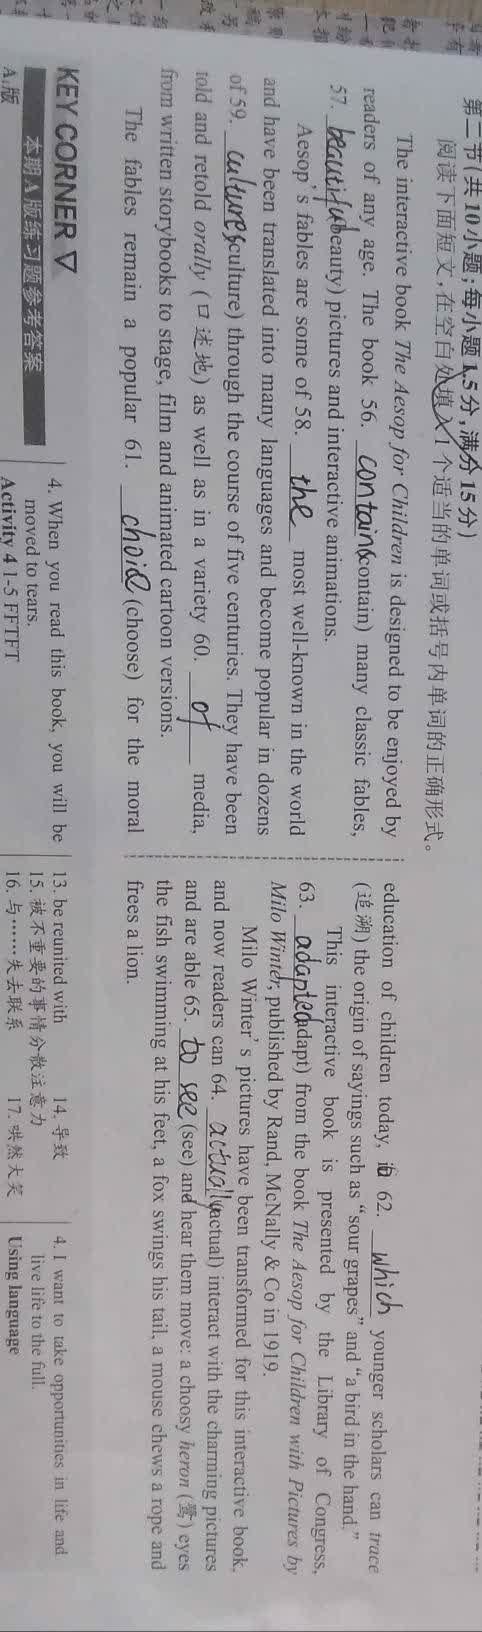 第二节(共10小题;每小题1.5分,满分15分)
阅读下面短文,在空白处填入1个适当的单词或括号内单词的正确形式。
The interactive book The Aesop for Children is designed to be enjoyed by
readers of any age. The book 56. contains (contain) many classic fables,
57. beautiful (beauty) pictures and interactive animations.
Aesop's fables are some of 58. the most well-known in the world
and have been translated into many languages and become popular in dozens
of 59. cultures (culture) through the course of five centuries. They have been
told and retold orally (口述地) as well as in a variety 60. of media,
from written storybooks to stage, film and animated cartoon versions.
The fables remain a popular 61. choice (choose) for the moral
education of children today, in 62. which younger scholars can trace
(追溯) the origin of sayings such as "sour grapes" and "a bird in the hand."
This interactive book is presented by the Library of Congress,
63. adapted (adapt) from the book The Aesop for Children with Pictures by
Milo Winter, published by Rand, McNally & Co in 1919.
Milo Winter's pictures have been transformed for this interactive book,
and now readers can 64. actually (actual) interact with the charming pictures
and are able 65. to see (see) and hear them move: a choosy heron (鹭) eyes
the fish swimming at his feet, a fox swings his tail, a mouse chews a rope and
frees a lion.
KEY CORNER ▽
本期A版练习题参考答案
A1版
4. When you read this book, you will be
moved to tears.
Activity 4 1-5 FFTFT
13. be reunited with 14. 导致
15. 被不重要的事情分散注意力
16. 与……失去联系 17. 哄然大笑
4. I want to take opportunities in life and
live life to the full.
Using language